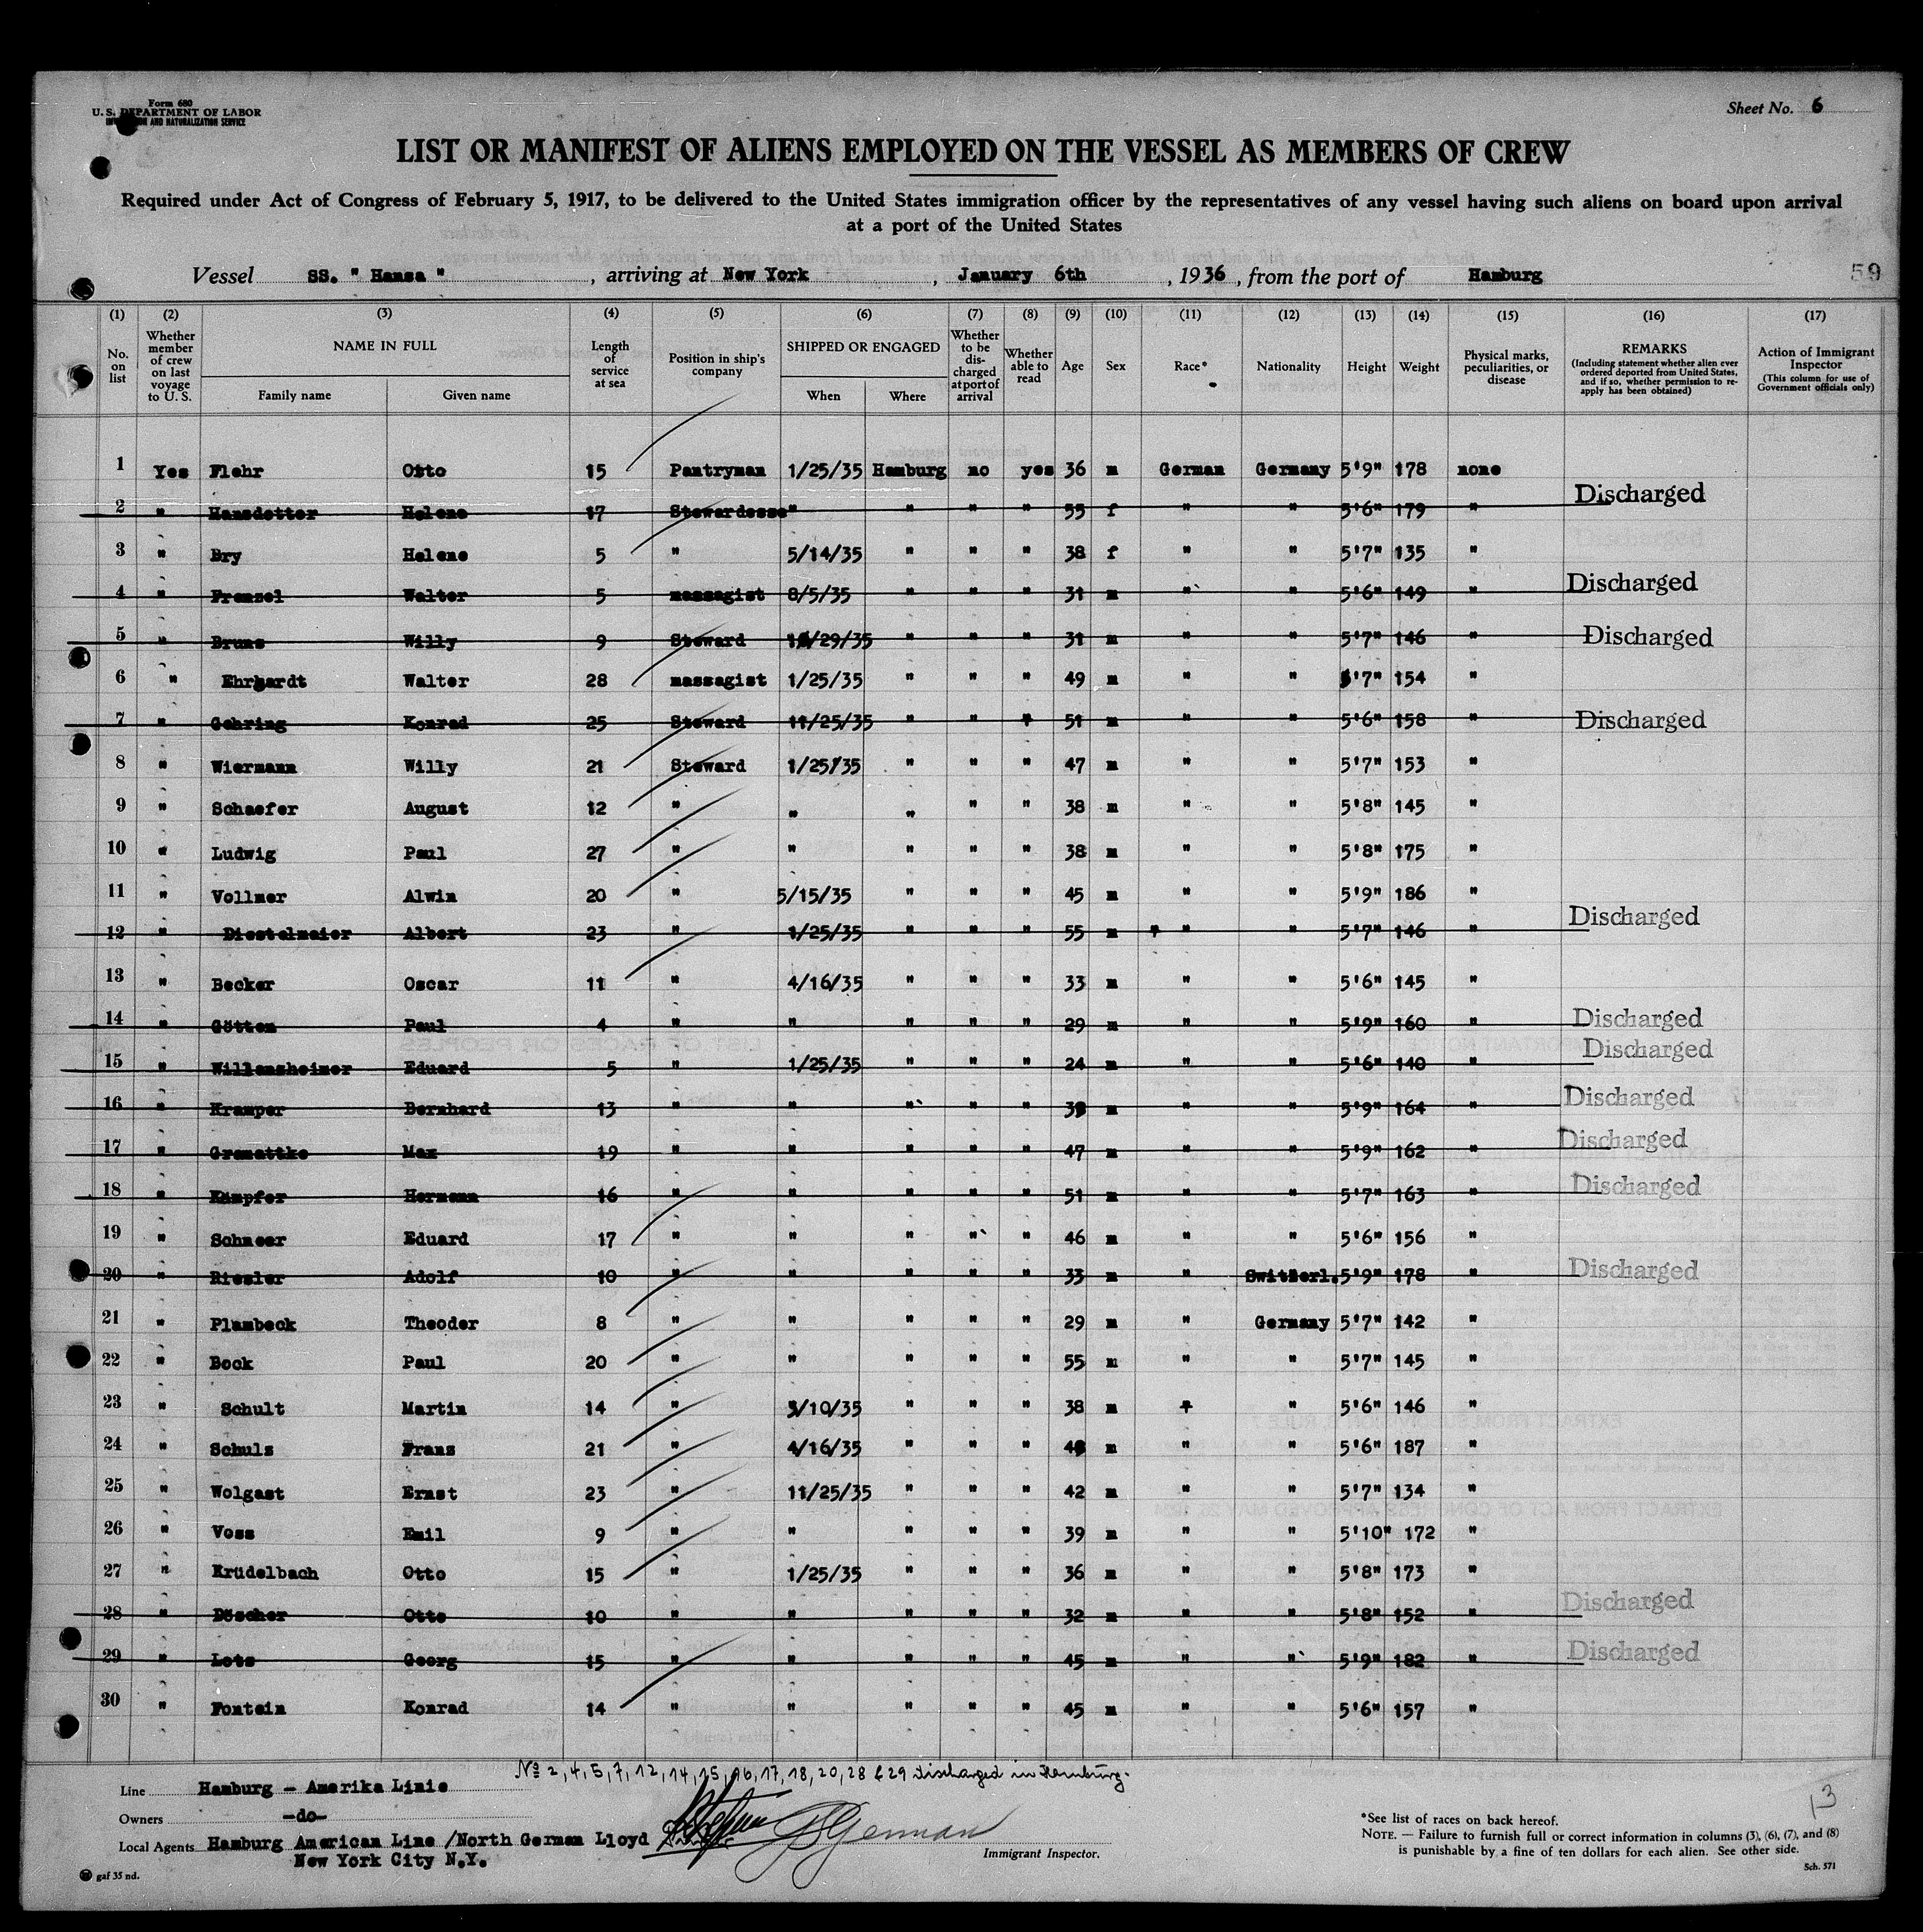 Form 680
U. S. DEPARTMENT OF LABOR
AND NATURALIZATION SERVICE
Sheet No. 6
LIST OR MANIFEST OF ALIENS EMPLOYED ON THE VESSEL AS MEMBERS OF CREW
Required under Act of Congress of February 5, 1917, to be delivered to the United States immigration officer by the representatives of any vessel having such aliens on board upon arrival
at a port of the United States
Vessel SS. " Hansa " , arriving at New York , January 6th , 1936 , from the port of Hamburg
59
(1) (2) (3) (4) (5) (6) (7) (8) (9) (10) (11) (12) (13) (14) (15) (16) (17)
No. on list Whether member of crew on last voyage to U. S. NAME IN FULL Family name Given name Length of service at sea Position in ship's company SHIPPED OR ENGAGED When Where Whether to be discharged at port of arrival Whether able to read Age Sex Race* Nationality Height Weight Physical marks, peculiarities, or disease REMARKS (Including statement whether alien ever ordered deported from United States, and if so, whether permission to re-apply has been obtained) Action of Immigrant Inspector (This column for use of Government officials only)
1 Yes Flehr Otto 15 Pantryman 1/25/35 Hamburg no yes 36 m German Germany 5'9" 178 none
2 " Hansdotter Helene 17 Stewardesse " " " " 55 f " " 5'6" 179 " Discharged
3 " Bry Helene 5 " 5/14/35 " " " 38 f " " 5'7" 135 "
4 " Frenzel Walter 5 massagist 8/5/35 " " " 31 m " " 5'6" 149 " Discharged
5 " Bruns Willy 9 Steward /29/35 " " " 31 m " " 5'7" 146 " Discharged
6 " Ehrhardt Walter 28 massagist 1/25/35 " " " 49 m " " 5'7" 154 "
7 " Gehring Konrad 25 Steward 11/25/35 " " " 51 m " " 5'6" 158 " Discharged
8 " Wiermann Willy 21 Steward 1/25/35 " " " 47 m " " 5'7" 153 "
9 " Schaefer August 12 " " " " " 38 m " " 5'8" 145 "
10 " Ludwig Paul 27 " " " " " 38 m " " 5'8" 175 "
11 " Vollmer Alwin 20 " 5/15/35 " " " 45 m " " 5'9" 186 "
12 " Diestelmaier Albert 23 " 1/25/35 " " " 55 m " " 5'7" 146 " Discharged
13 " Becker Oscar 11 " 4/16/35 " " " 33 m " " 5'6" 145 "
14 " Götten Paul 4 " " " " " 29 m " " 5'9" 160 " Discharged
15 " Willemsheimer Eduard 5 " 1/25/35 " " " 24 m " " 5'6" 140 " Discharged
16 " Kramper Bernhard 13 " " " " " 39 m " " 5'9" 164 " Discharged
17 " Gremattke Max 19 " " " " " 47 m " " 5'9" 162 " Discharged
18 " Kämpfer Hermann 16 " " " " " 51 m " " 5'7" 163 " Discharged
19 " Schneer Eduard 17 " " " " " 46 m " " 5'6" 156 "
20 " Riesler Adolf 10 " " " " " 33 m " Switzerl. 5'9" 178 " Discharged
21 " Plambeck Theoder 8 " " " " " 29 m " Germany 5'7" 142 "
22 " Bock Paul 20 " " " " " 55 m " " 5'7" 145 "
23 " Schult Martin 14 " 5/10/35 " " " 38 m " " 5'6" 146 "
24 " Schulz Franz 21 " 4/16/35 " " " m " " 5'6" 187 "
25 " Wolgast Ernst 23 " 11/25/35 " " " 42 m " " 5'7" 134 "
26 " Voss Emil 9 " " " " " 39 m " " 5'10" 172 "
27 " Krüdelbach Otto 15 " 1/25/35 " " " 36 m " " 5'8" 173 "
28 " Döscher Otto 10 " " " " " 32 m " " 5'8" 152 " Discharged
29 " Lotz Georg 15 " " " " " 45 m " " 5'9" 182 " Discharged
30 " Fontein Konrad 14 " " " " " 45 m " " 5'6" 157 "
No 2, 4, 5, 7, 12, 14, 15, 16, 17, 18, 20, 28 & 29 discharged in Hamburg.
Line Hamburg - Amerika Linie
Owners -do-
Local Agents Hamburg American Line /North German Lloyd
New York City N.Y.
Immigrant Inspector.
13
*See list of races on back hereof.
NOTE. — Failure to furnish full or correct information in columns (3), (6), (7), and (8)
is punishable by a fine of ten dollars for each alien. See other side.
gaf 35 nd.
Sch. 571